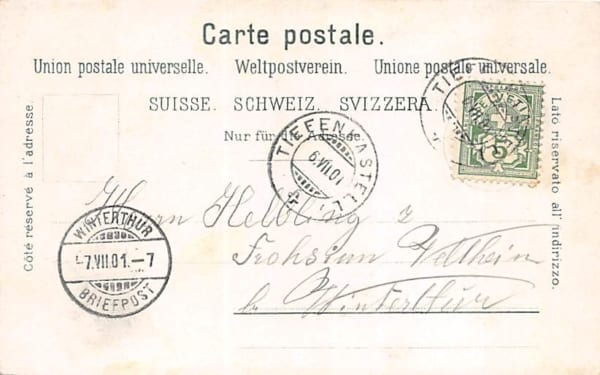 Carte postale.
Union postale universelle. Weltpostverein. Unione postale universale.
SUISSE. SCHWEIZ. SVIZZERA.
Nur für die Adresse.
Côté réservé à l'adresse.
Lato riservato all' indirizzo.
TIEFENCASTEL
6.VII.01
HELVETIA
5
WINTERTHUR
7.VII.01.-7
BRIEFPOST
Herrn Helbling
Veltheim
b. Winterthur